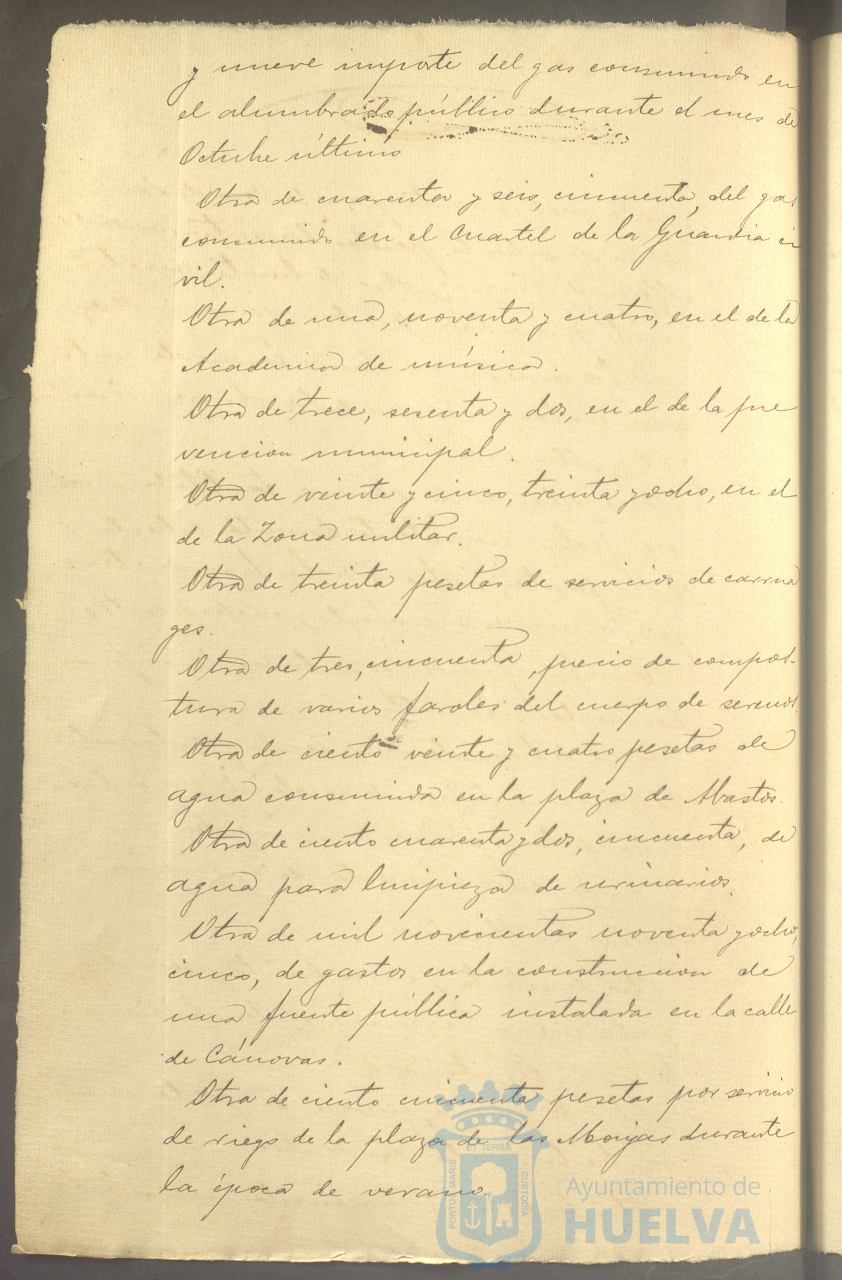 y nueve importe del gas consumido en
el alumbrado público durante el mes de
Octubre último
Otra de cuarenta y seis, cincuenta, del gas
consumido en el Cuartel de la Guardia ci
vil.
Otra de una, noventa y cuatro, en el de la
Academia de música.
Otra de trece, sesenta y dos, en el de la pre
vencion municipal.
Otra de veinte y cinco, treinta y ocho, en el
de la Zona militar.
Otra de treinta pesetas de servicios de carrua
ges.
Otra de tres, cincuenta, precio de compos-
tura de varios faroles del cuerpo de serenos.
Otra de ciento veinte y cuatro pesetas de
agua consumida en la plaza de Abastos.
Otra de ciento cuarenta y dos, cincuenta, de
agua para limpieza de urinarios.
Otra de mil novecientas noventa y ocho,
cinco, de gastos en la construccion de
una fuente pública instalada en la calle
de Cánovas.
Otra de ciento cincuenta pesetas por servicio
de riego de la plaza de las Monjas durante
la época de verano.
PORTUS MARIS ET TERRÆ CUSTODIA
Ayuntamiento de
HUELVA